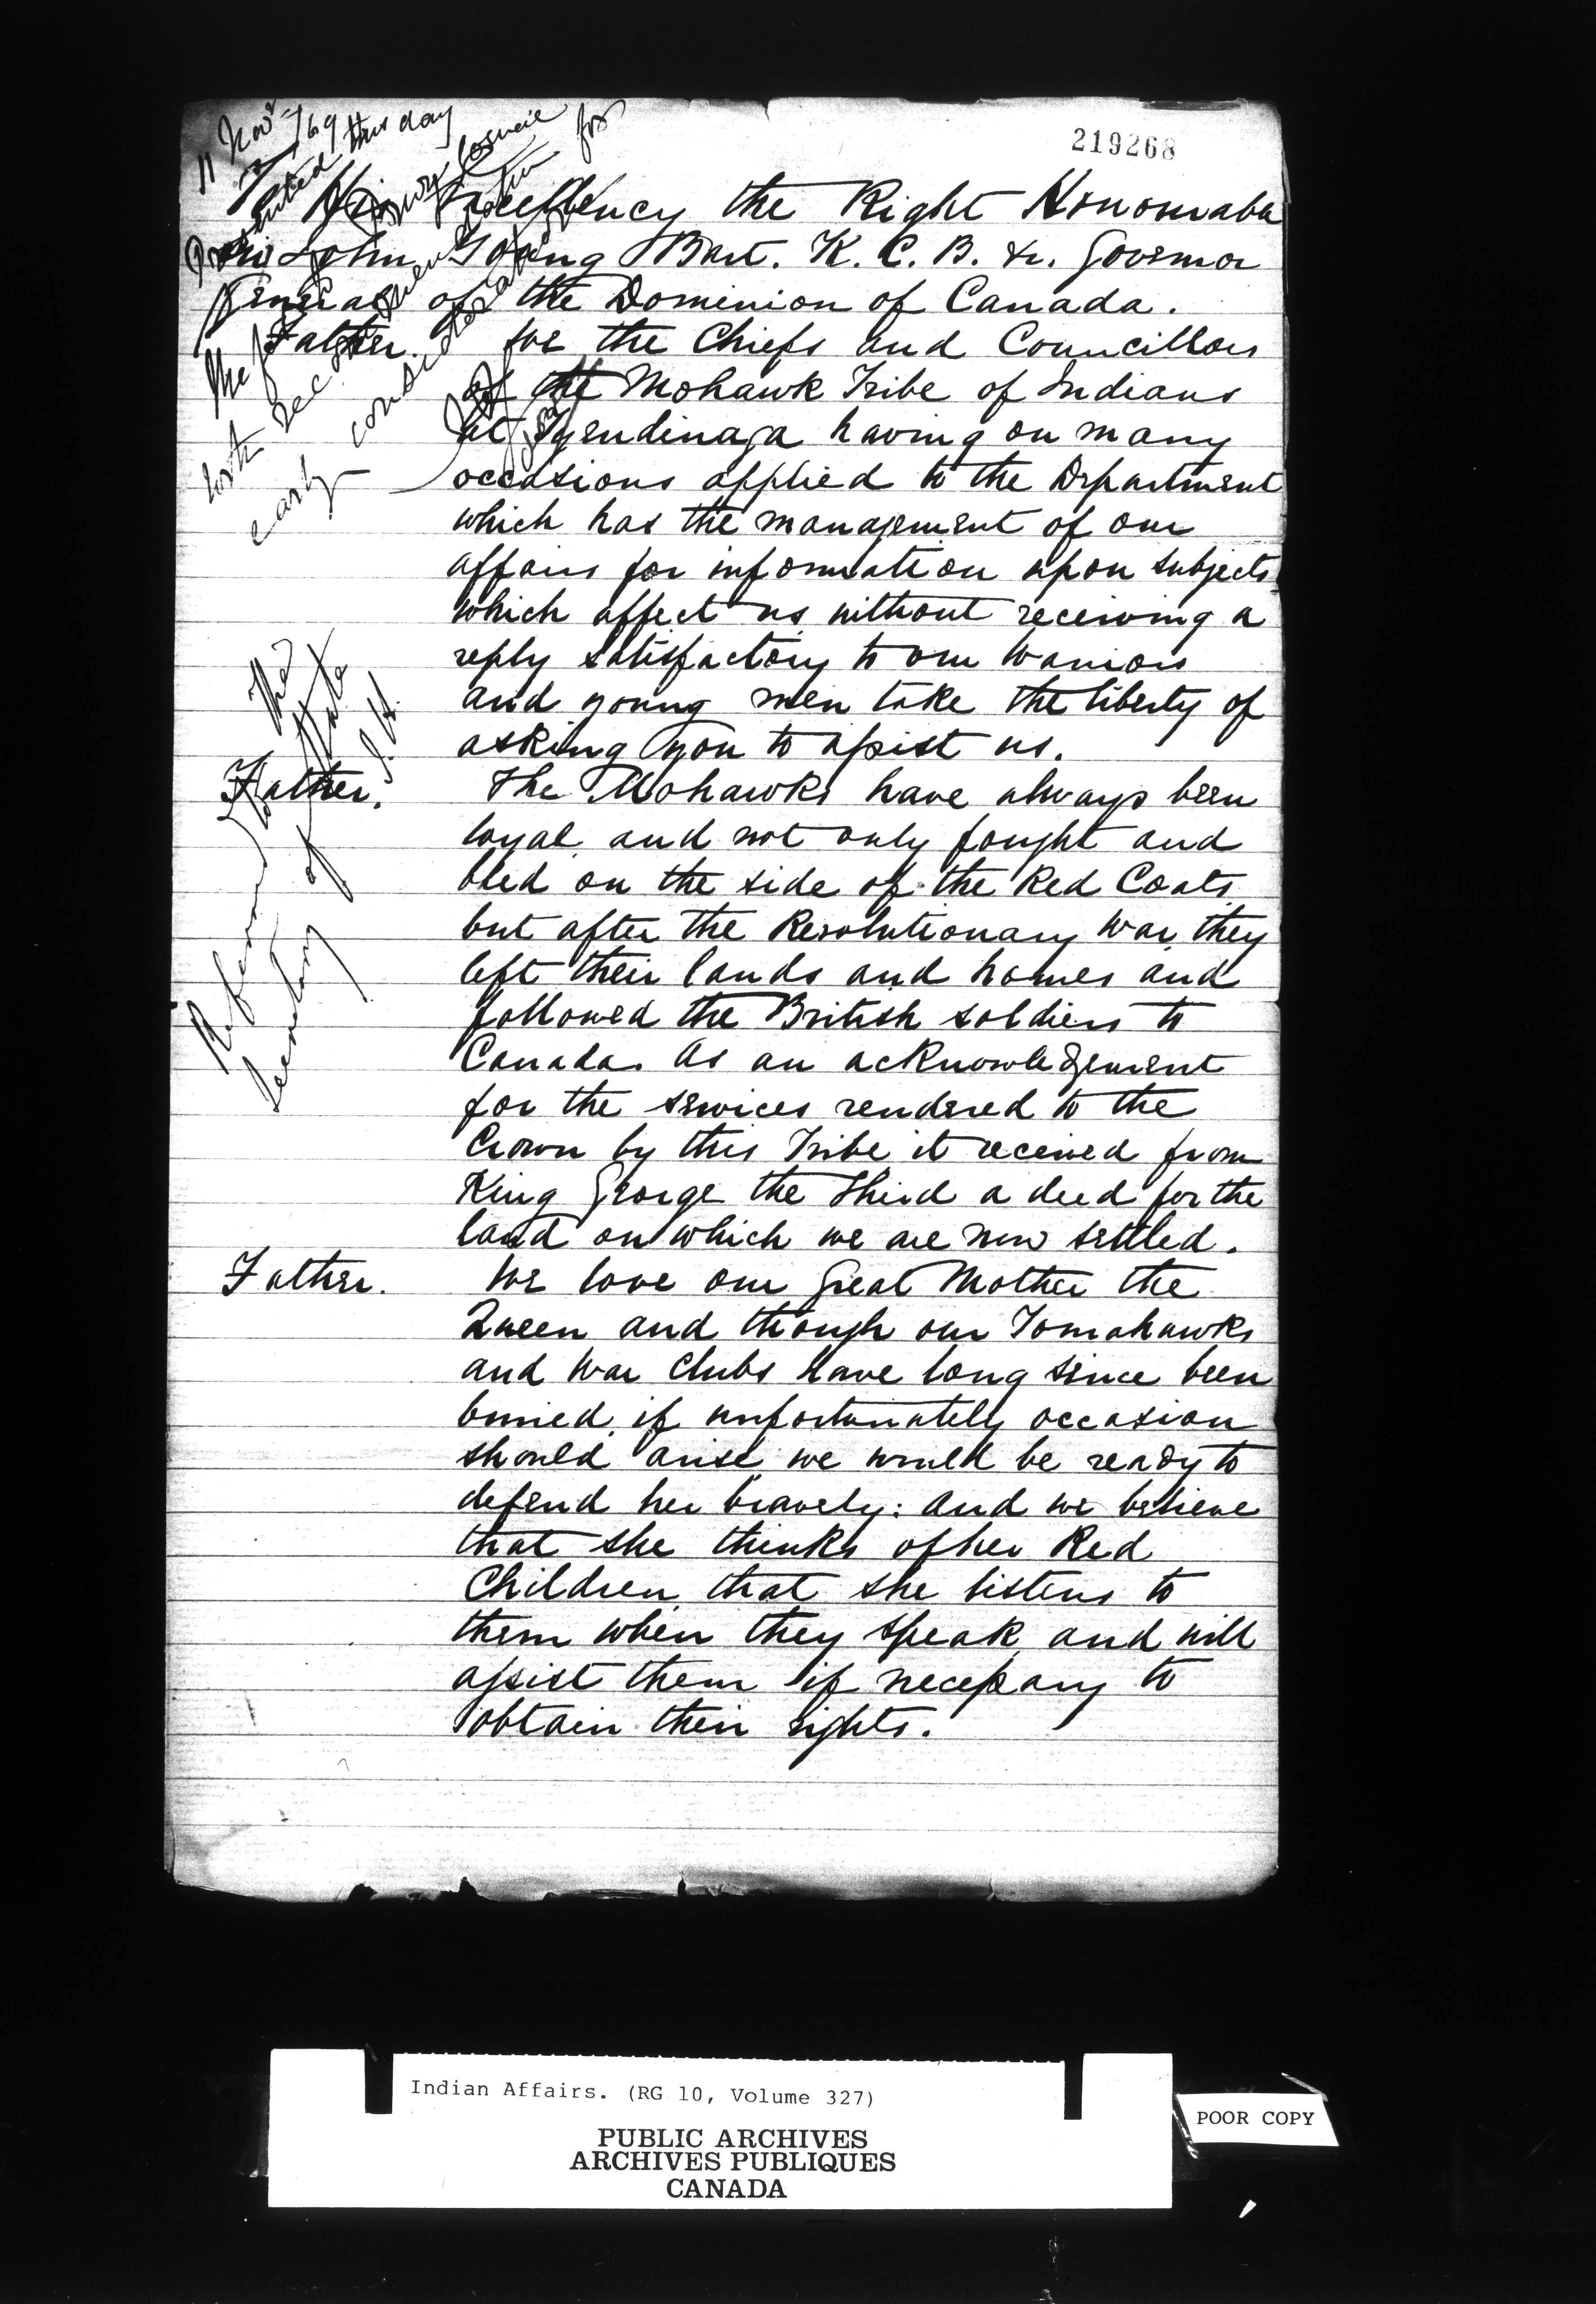 219268
11 Nov /69
Presented this day
early consideration
To His Excellency the Right Honorable
Sir John Young Bart. K. C. B. &c. Governor
General of the Dominion of Canada.
Father. We the Chiefs and Councillors
of the Mohawk Tribe of Indians
at Tyendinaga having on many
occasions applied to the Department
which has the management of our
affairs for information upon subjects
which affect us without receiving a
reply satisfactory to our Warriors
and young men take the liberty of
asking you to assist us.
Father. The Mohawks have always been
loyal, and not only fought and
bled on the side of the Red Coats
but after the Revolutionary War, they
left their lands and homes and
followed the British soldiers to
Canada. As an acknowledgement
for the services rendered to the
Crown by this Tribe it received from
King George the Third a deed for the
land on which we are now settled.
Father. We love our Great Mother the
Queen and though our Tomahawks
and War Clubs have long since been
buried, if unfortunately occasion
should arise, we would be ready to
defend her bravely: and we believe
that she thinks of her Red
Children, that she listens to
them when they speak, and will
assist them if necessary to
obtain their rights.
Referred the
Secretary of State
Indian Affairs. (RG 10, Volume 327)
PUBLIC ARCHIVES
ARCHIVES PUBLIQUES
CANADA
POOR COPY